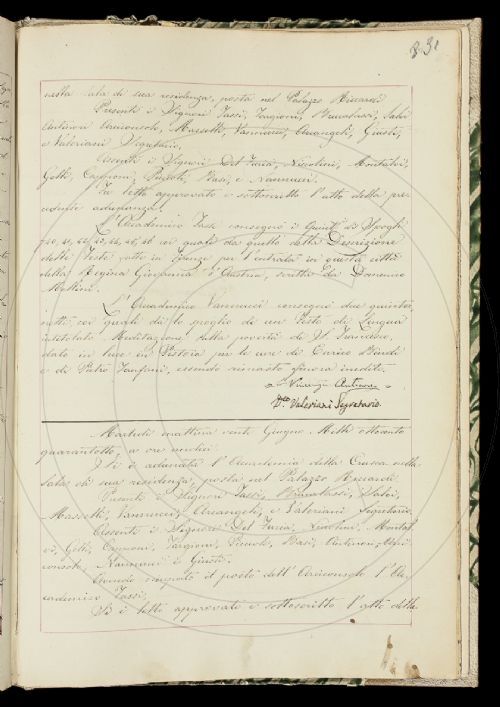 31
nella Sala di sua residenza, posta nel Palazzo Riccardi
Presenti i Signori Tassi, Targioni, Brucalassi, Salvi
Antinori Arciconsolo, Masselli, Vannucci, Arcangeli, Giusti,
e Valeriani Segretario.
Assenti i Signori Del Furia, Niccolini, Montalvi,
Gelli, Capponi, Puccioli, Basi, e Nannucci.
Fu letto approvato e sottoscritto l'atto della pre-
cedente adunanza.
L'Accademico Tassi consegnò i Quint. di Spogli
40, 41, 42, 43, 44, 45, 46 coi quali dà quello della Descrizione
delle Feste fatte in Firenze per l'entrata in questa città
della Regina Giovanna d'Austria, scritto da Domenico
Mellini.
L'Accademico Vannucci consegnò due quinter-
netti, coi quali dà lo spoglio di un Testo di Lingua
intitolato Meditazione sulla povertà di S. Francesco,
dato in luce in Pistoia per le cure di Enrico Bindi
e di Pietro Fanfani, essendo rimasto finora inedito.
Vincenzio Antinori
Dco Valeriani Segretario.
Martedì mattina venti Giugno Mille ottocento
quarantotto, a ore undici.
Si è adunata l'Accademia della Crusca nella
Sala di sua residenza, posta nel Palazzo Riccardi.
Presenti i Signori Tassi, Brucalassi, Salvi,
Masselli, Vannucci, Arcangeli, e Valeriani Segretario.
Assenti i Signori Del Furia, Niccolini, Montal-
vi, Gelli, Capponi, Targioni, Puccioli, Basi, Antinori, Arci-
consolo, Nannucci e Giusti.
Avendo occupato il posto dell'Arciconsolo l'Ac-
cademico Tassi,
Si è letto approvato e sottoscritto l'atto della